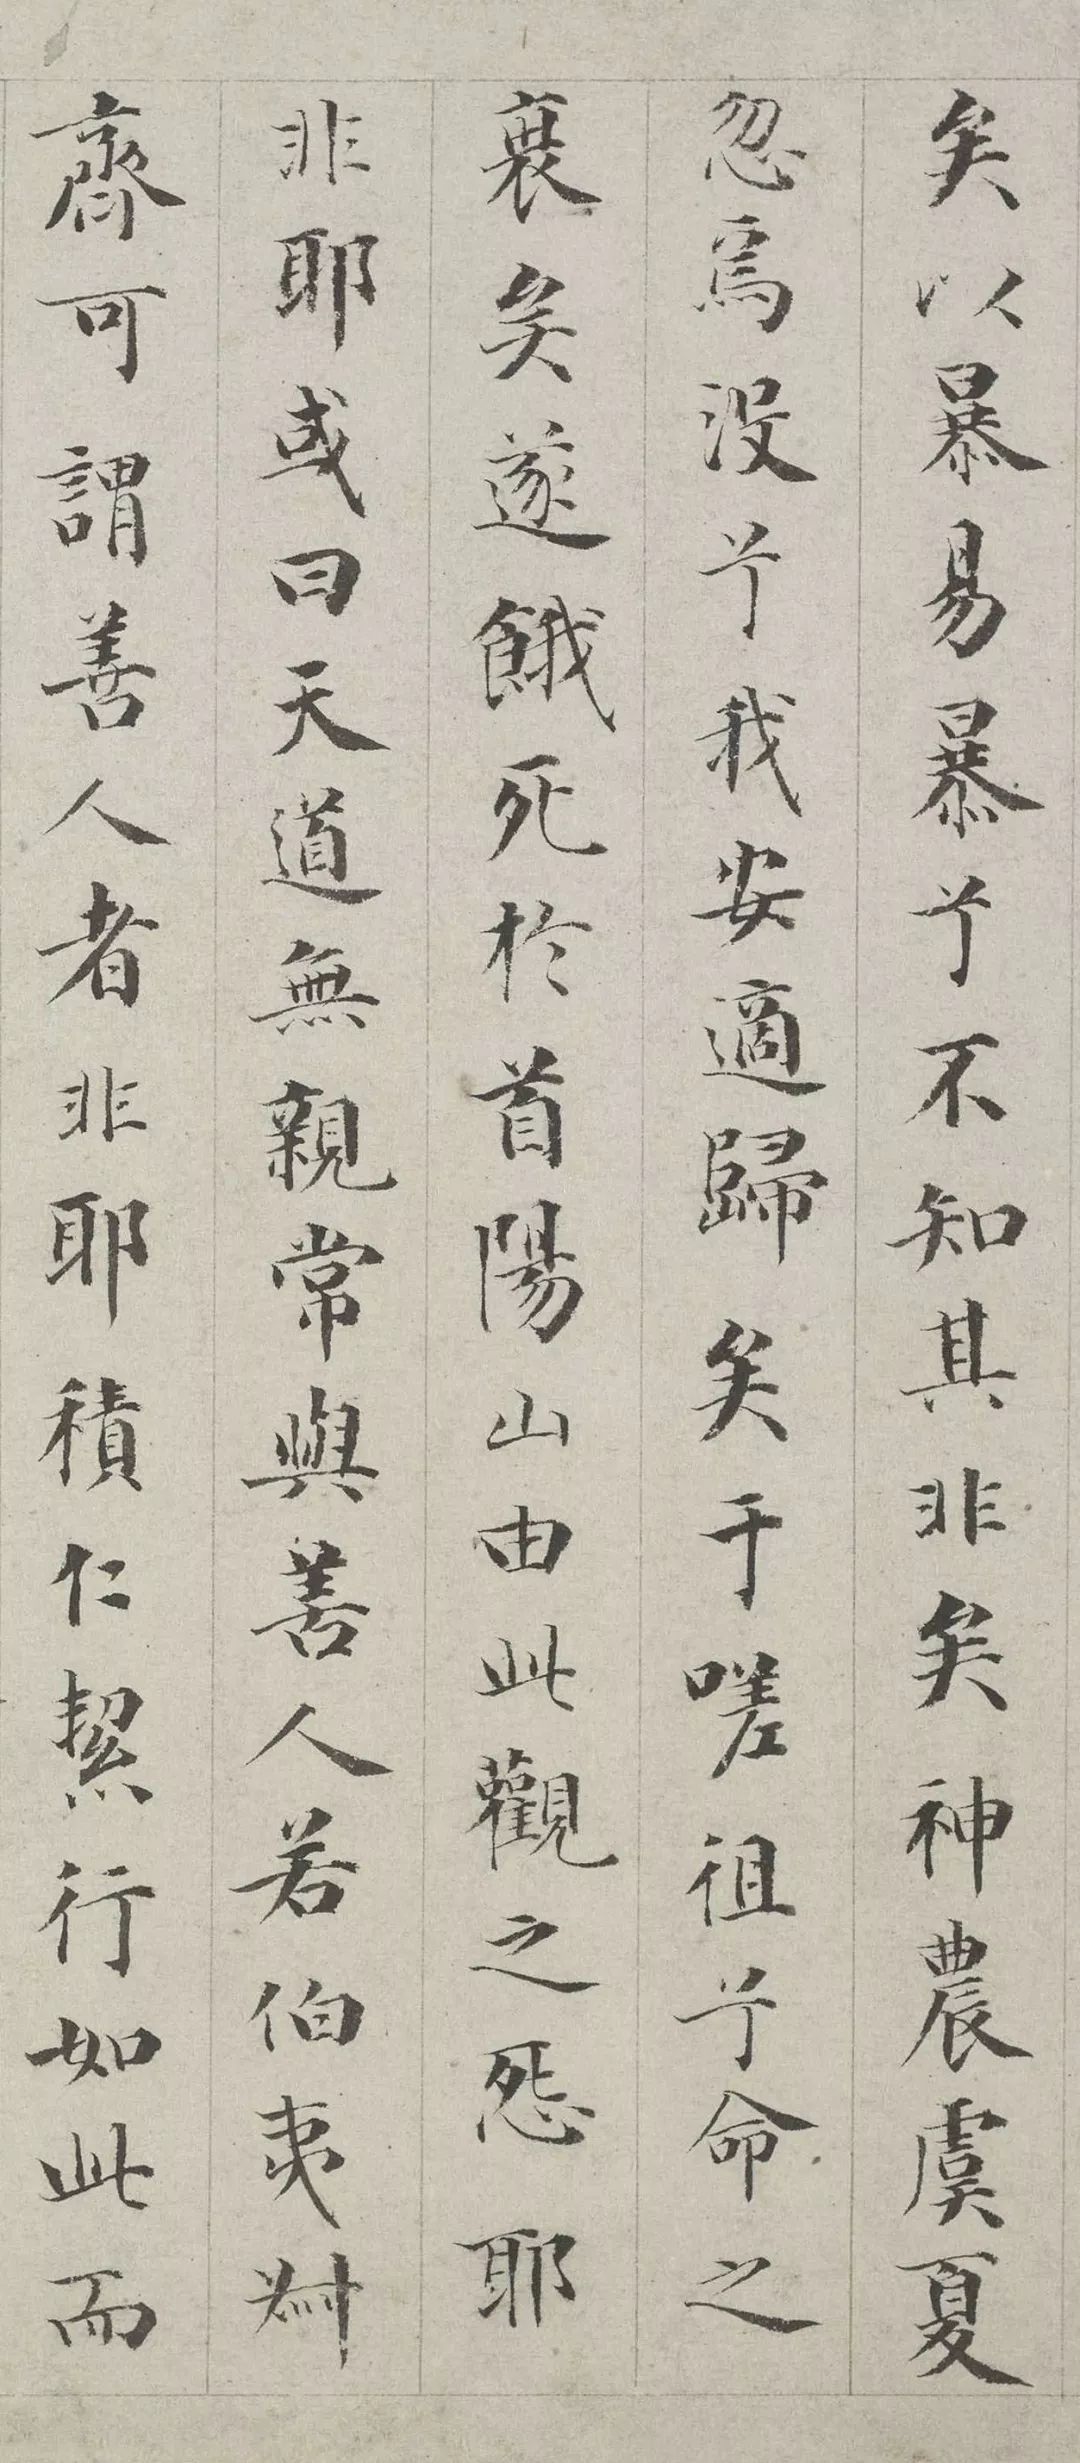 矣以暴易暴兮不知其非矣神農虞夏
忽焉没兮我安適歸矣于嗟徂兮命之
衰矣遂餓死於首陽山由此觀之怨耶
非耶或曰天道無親常與善人若伯夷叔
齊可謂善人者非耶積仁絜行如此而